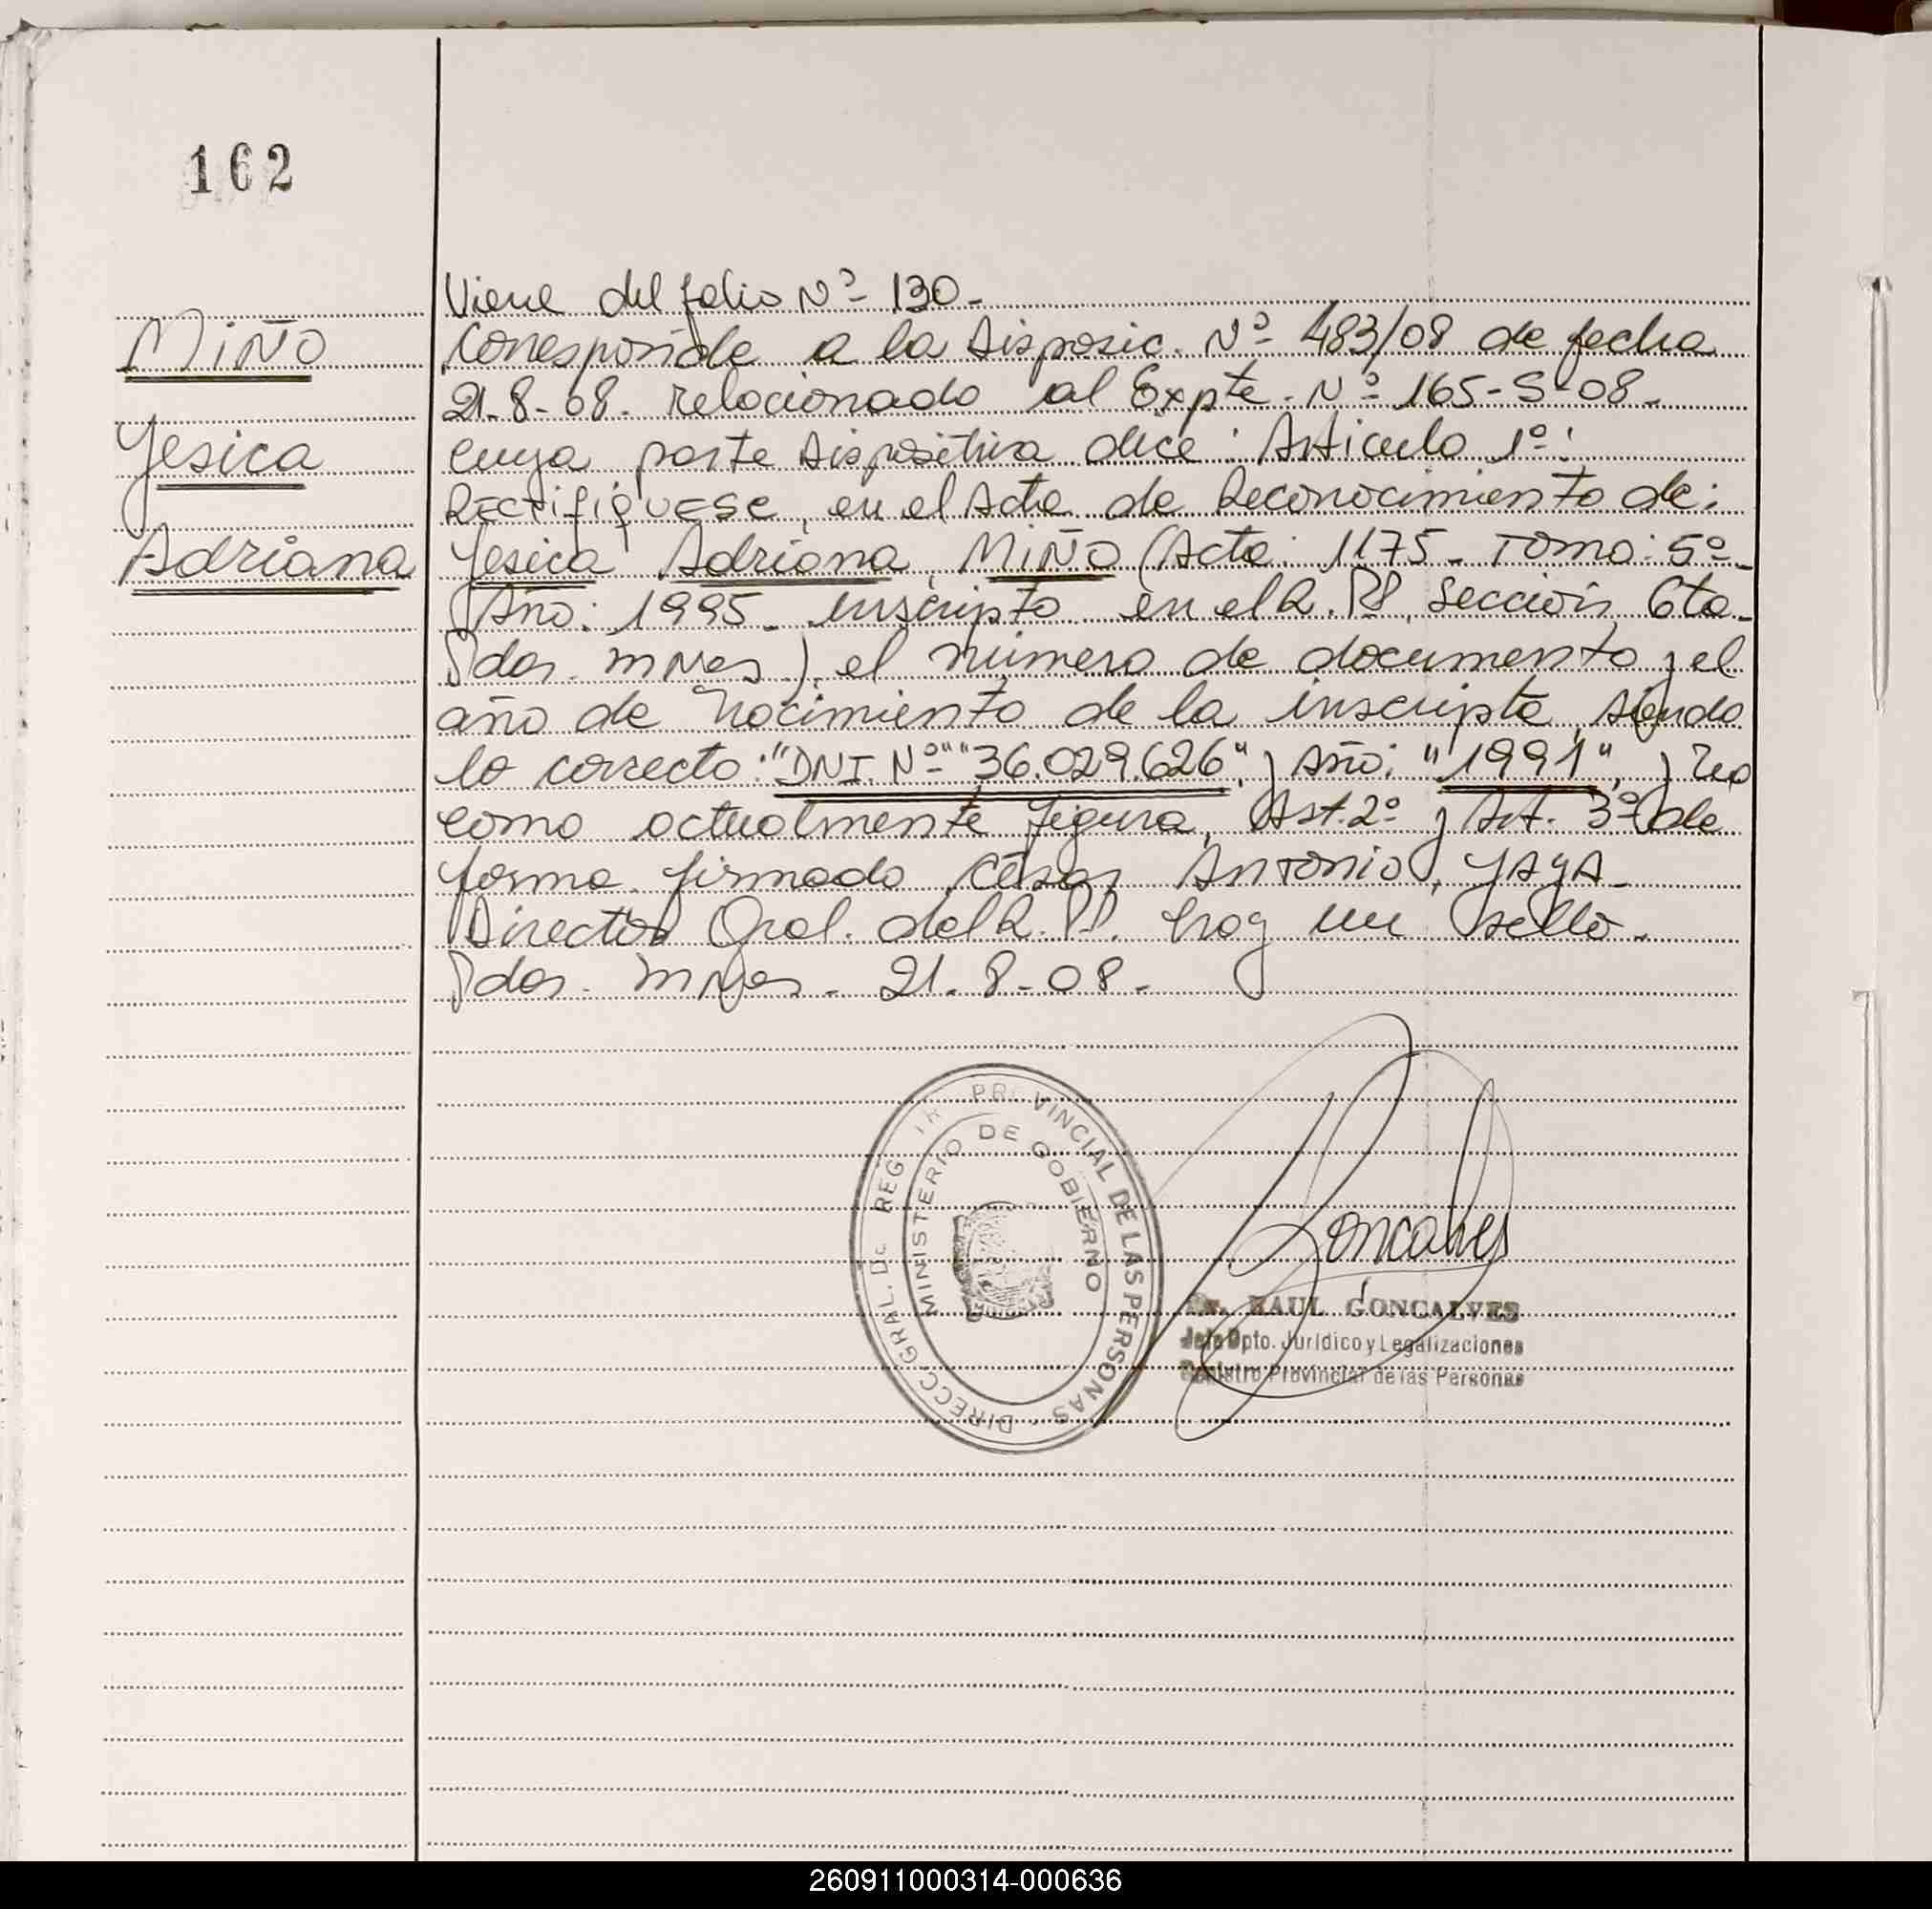 162
MIÑO
Yesica
Adriana
Viene del folio Nº 130-
Corresponde a la Disposic. Nº 483/08 de fecha
21-8-08- relacionado al Expte. Nº 165-S-08-
cuya parte Dispositiva dice: Articulo 1º:
RECTIFIQUESE, en el Acta de Reconocimiento de:
Yesica Adriana, MIÑO (Acta: 1175- Tomo: 5º-
Año: 1995- inscripto en el R. PP, Sección 6ta-
Pdas. mnes), el número de documento y el
año de nacimiento de la inscripta, siendo
lo correcto: "DNI Nº" "36.029.626", y Año: "1991", y no
como actualmente figura, Art. 2º y Art. 3º de
forma firmado César Antonio, YAYA-
Director Gral. del R. PP. hay un sello-
Pdas. mnes- 21-8-08-
DIRECC. GRAL. DE REG PROVINCIAL DE LAS PERSONAS
MINISTERIO DE GOBIERNO
Goncalves
Dr. RAUL GONCALVES
Jefe Dpto. Jurídico y Legalizaciones
Registro Provincial de las Personas
260911000314-000636